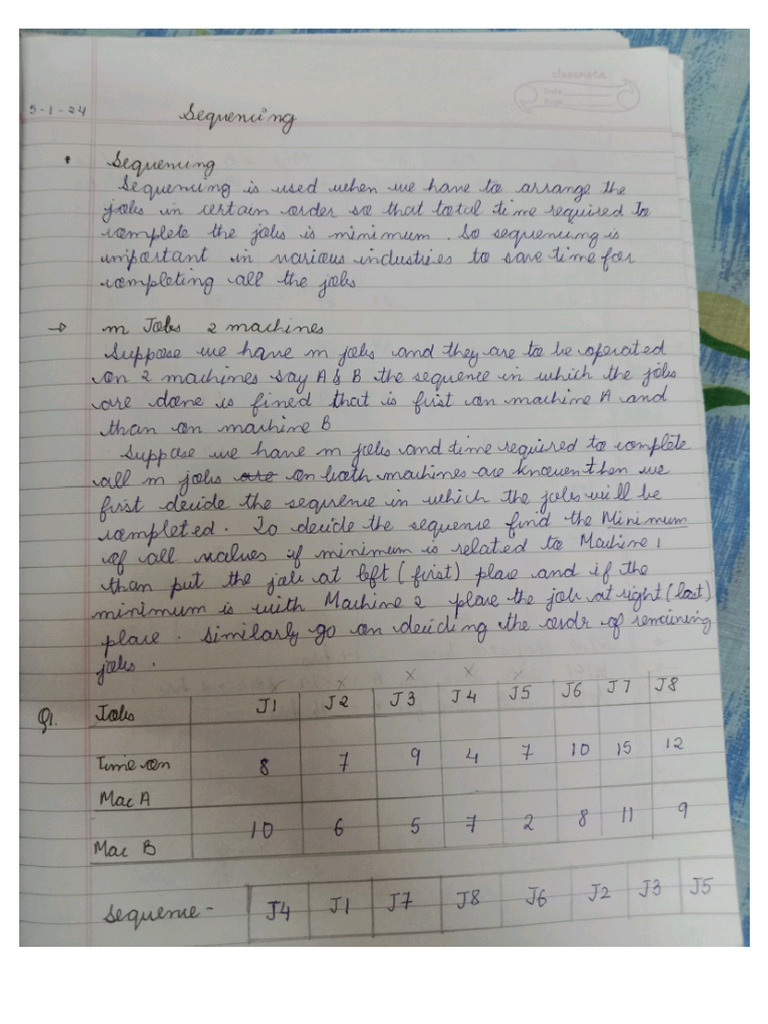 classmate
Date
Page
5-1-24
Sequencing
• Sequencing
Sequencing is used when we have to arrange the
jobs in certain order so that total time required to
complete the jobs is minimum. So sequencing is
important in various industries to save time for
completing all the jobs
→ m Jobs 2 machines
Suppose we have m jobs and they are to be operated
on 2 machines say A & B the sequence in which the jobs
are done is fined that is first on machine A and
than on machine B
Suppose we have m jobs and time required to complete
all m jobs are on both machines are known then we
first decide the sequence in which the jobs will be
completed. To decide the sequence find the Minimum
of all values if minimum is related to Machine 1
than put the job at left (first) place and if the
minimum is with Machine 2 place the job at right (last)
place. Similarly go on deciding the ordr of remaining
jobs.
x x x x x
Q1. Jobs J1 J2 J3 J4 J5 J6 J7 J8
Time on 8 7 9 4 7 10 15 12
Mac A
10 6 5 7 2 8 11 9
Mac B
Sequence - J4 J1 J7 J8 J6 J2 J3 J5